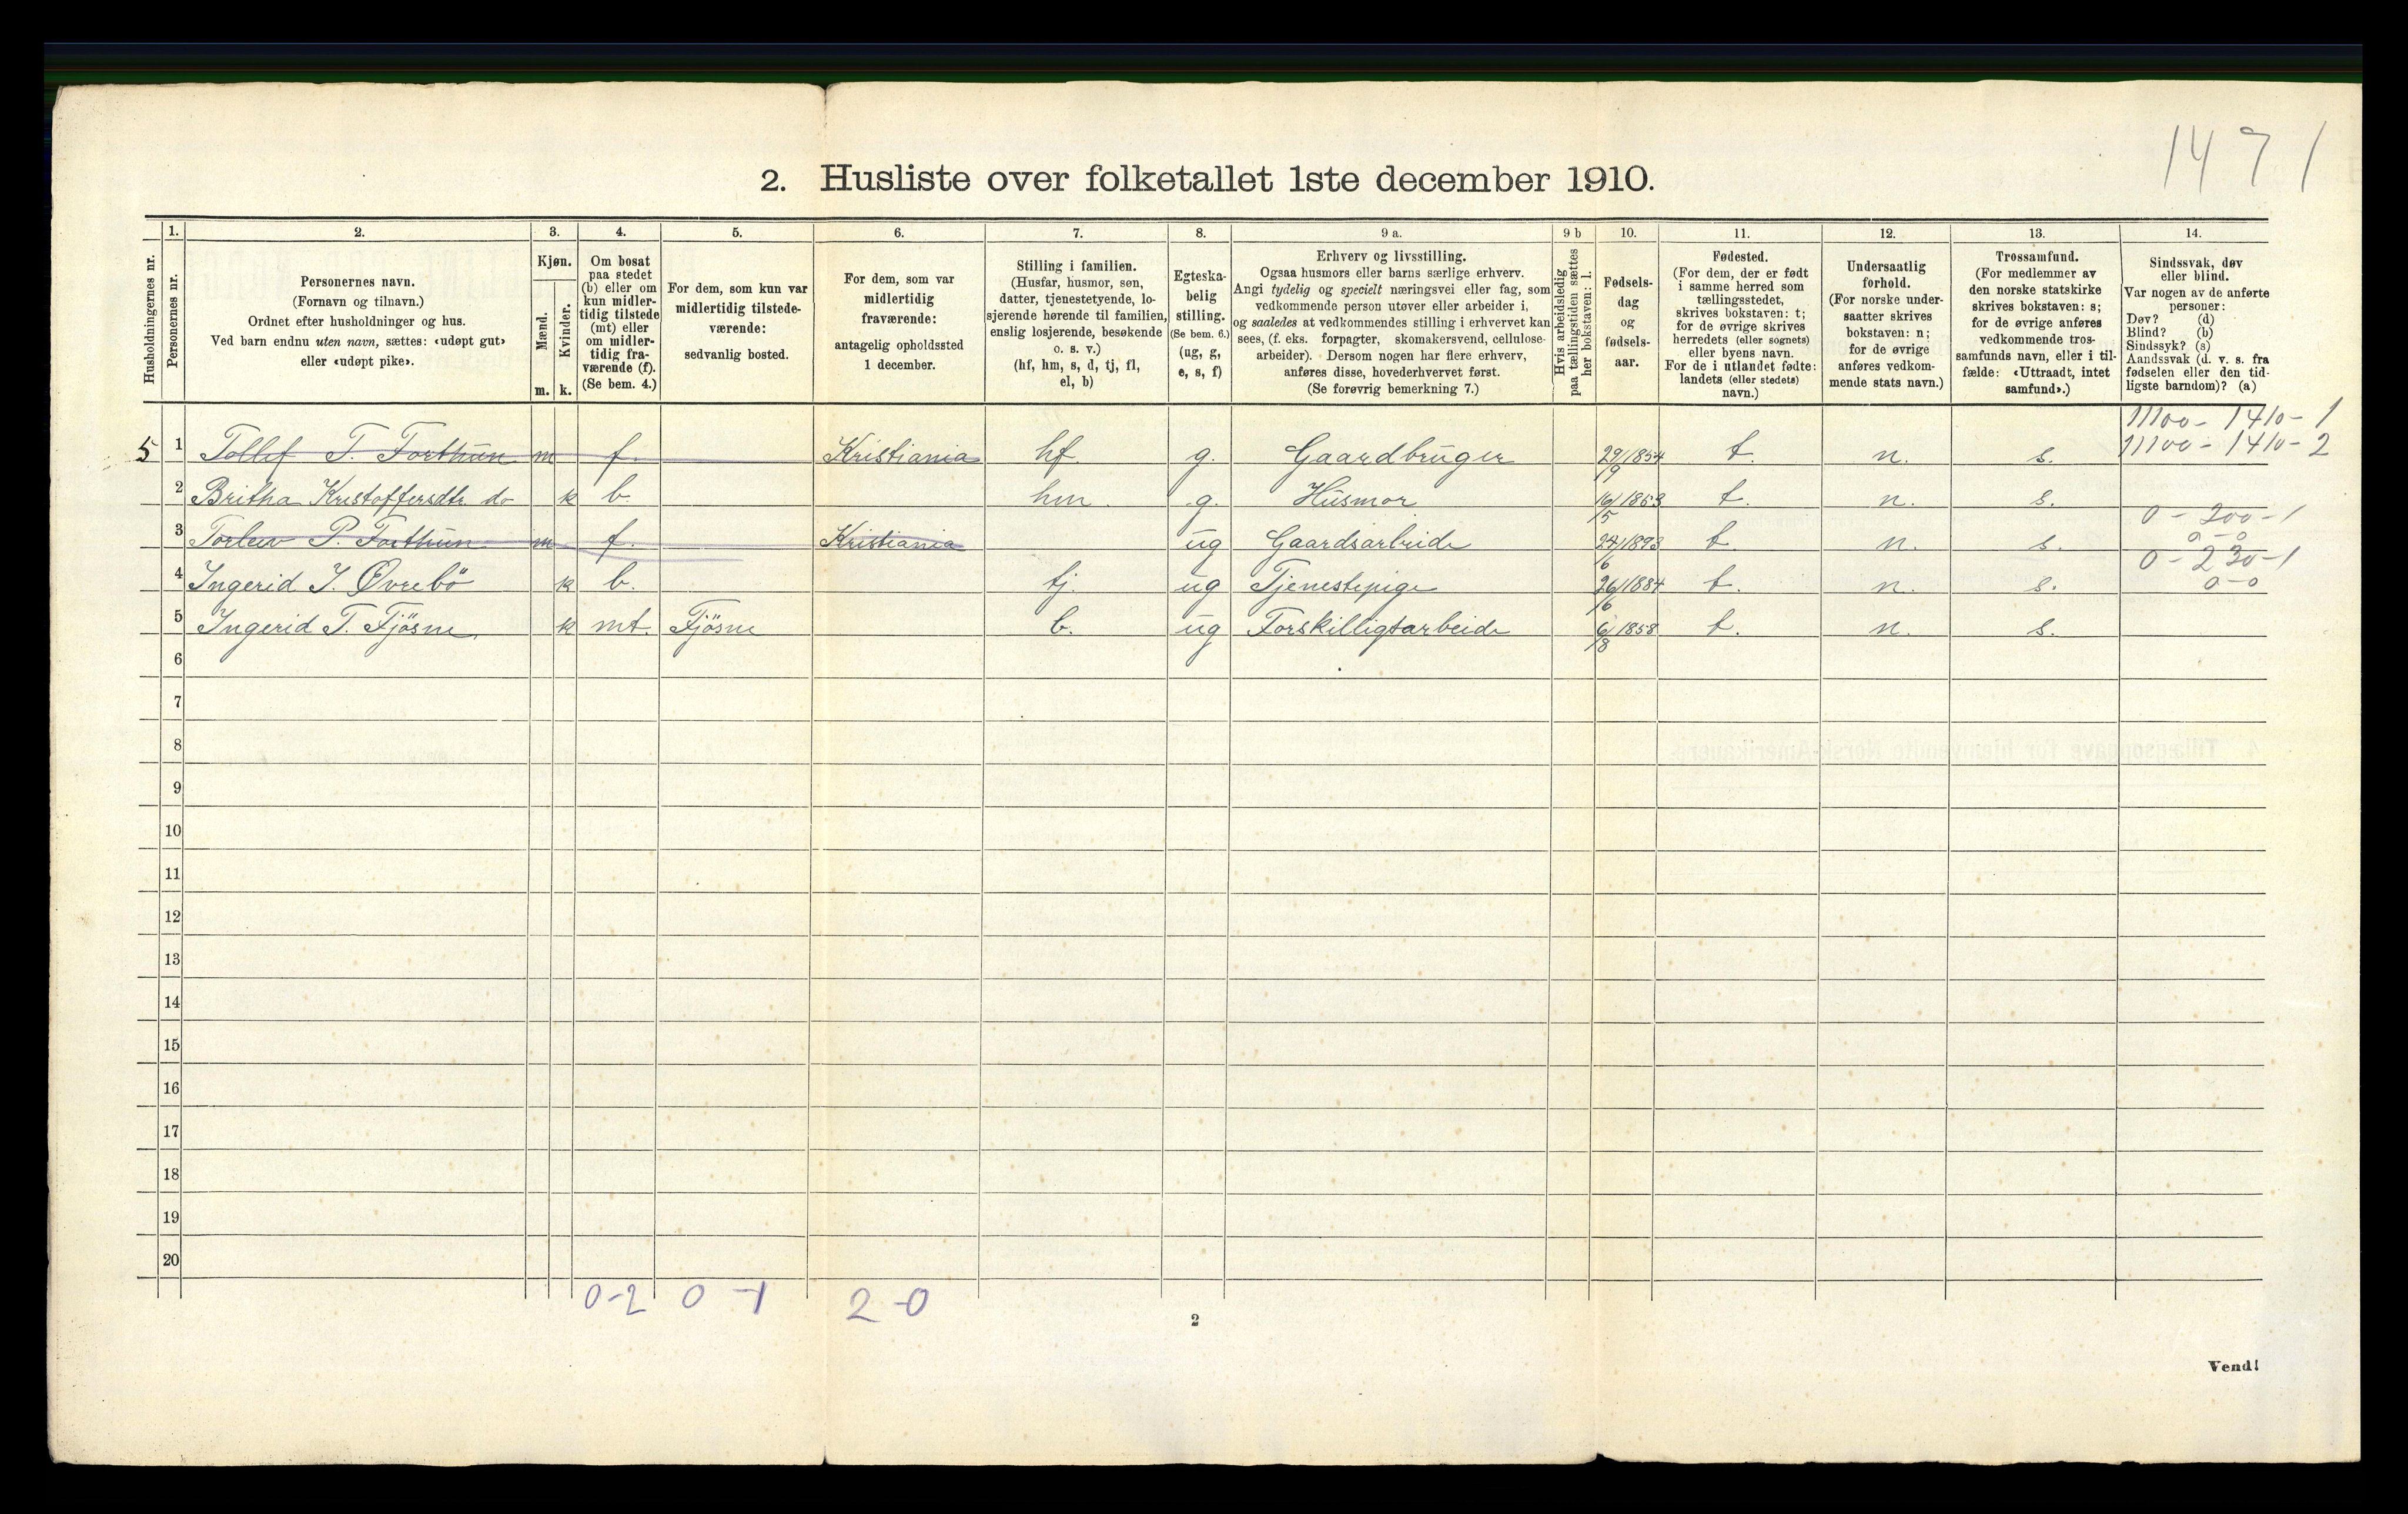 1471
2. Husliste over folketallet 1ste december 1910.
Husholdningernes nr.
1. Personernes nr.
2. Personernes navn.
(Fornavn og tilnavn.)
Ordnet efter husholdninger og hus.
Ved barn endnu uten navn, sættes: «udøpt gut»
eller «udøpt pike».
3. Kjøn.
Mænd. m.
Kvinder. k.
4. Om bosat
paa stedet
(b) eller om
kun midler-
tidig tilstede
(mt) eller
om midler-
tidig fra-
værende (f).
(Se bem. 4.)
5. For dem, som kun var
midlertidig tilstede-
værende:
sedvanlig bosted.
6. For dem, som var
midlertidig
fraværende:
antagelig opholdssted
1 december.
7. Stilling i familien.
(Husfar, husmor, søn,
datter, tjenestetyende, lo-
sjerende hørende til familien,
enslig losjerende, besøkende
o. s. v.)
(hf, hm, s, d, tj, fl,
el, b)
8. Egteska-
belig
stilling.
(Se bem. 6.)
(ug, g,
e, s, f)
9 a. Erhverv og livsstilling.
Ogsaa husmors eller barns særlige erhverv.
Angi tydelig og specielt næringsvei eller fag, som
vedkommende person utøver eller arbeider i,
og saaledes at vedkommendes stilling i erhvervet kan
sees, (f. eks. forpagter, skomakersvend, cellulose-
arbeider). Dersom nogen har flere erhverv,
anføres disse, hovederhvervet først.
(Se forøvrig bemerkning 7.)
9 b Hvis arbeidsledig
paa tællingstiden sættes
her bokstaven: l.
10. Fødsels-
dag
og
fødsels-
aar.
11. Fødested.
(For dem, der er født
i samme herred som
tællingsstedet,
skrives bokstaven: t;
for de øvrige skrives
herredets (eller sognets)
eller byens navn.
For de i utlandet fødte:
landets (eller stedets)
navn.)
12. Undersaatlig
forhold.
(For norske under-
saatter skrives
bokstaven: n;
for de øvrige
anføres vedkom-
mende stats navn.)
13. Trossamfund.
(For medlemmer av
den norske statskirke
skrives bokstaven: s;
for de øvrige anføres
vedkommende tros-
samfunds navn, eller i til-
fælde: «Uttraadt, intet
samfund».)
14. Sindssvak, døv
eller blind.
Var nogen av de anførte
personer:
Døv? (d)
Blind? (b)
Sindssyk? (s)
Aandssvak (d. v. s. fra
fødselen eller den tid-
ligste barndom)? (a)
11100 - 1410 - 1
11100 - 1410 - 2
5 1 Tollef T. Forthun m f. Kristiania hf g. Gaardbruger 29/9 1854 t. n. s.
2 Britha Kristoffersdtr. do k b. hm g. Husmor 16/5 1853 t. n. s.
0 - 200 - 1
0-0
3 Torleiv P. Forthun m f. Kristiania ug Gaardsarbeide 24/6 1893 t. n. s.
0 - 230 - 1
0-0
4 Ingerid I. Øvrebö k b. tj. ug Tjenestepige 26/6 1884 t. n. s.
5 Ingerid T. Fjösne k mt. Fjösne b. ug Forskilligtarbeide 6/8 1858 t. n. s.
6
7
8
9
10
11
12
13
14
15
16
17
18
19
20
0-2 0-1 2-0
2
Vend!